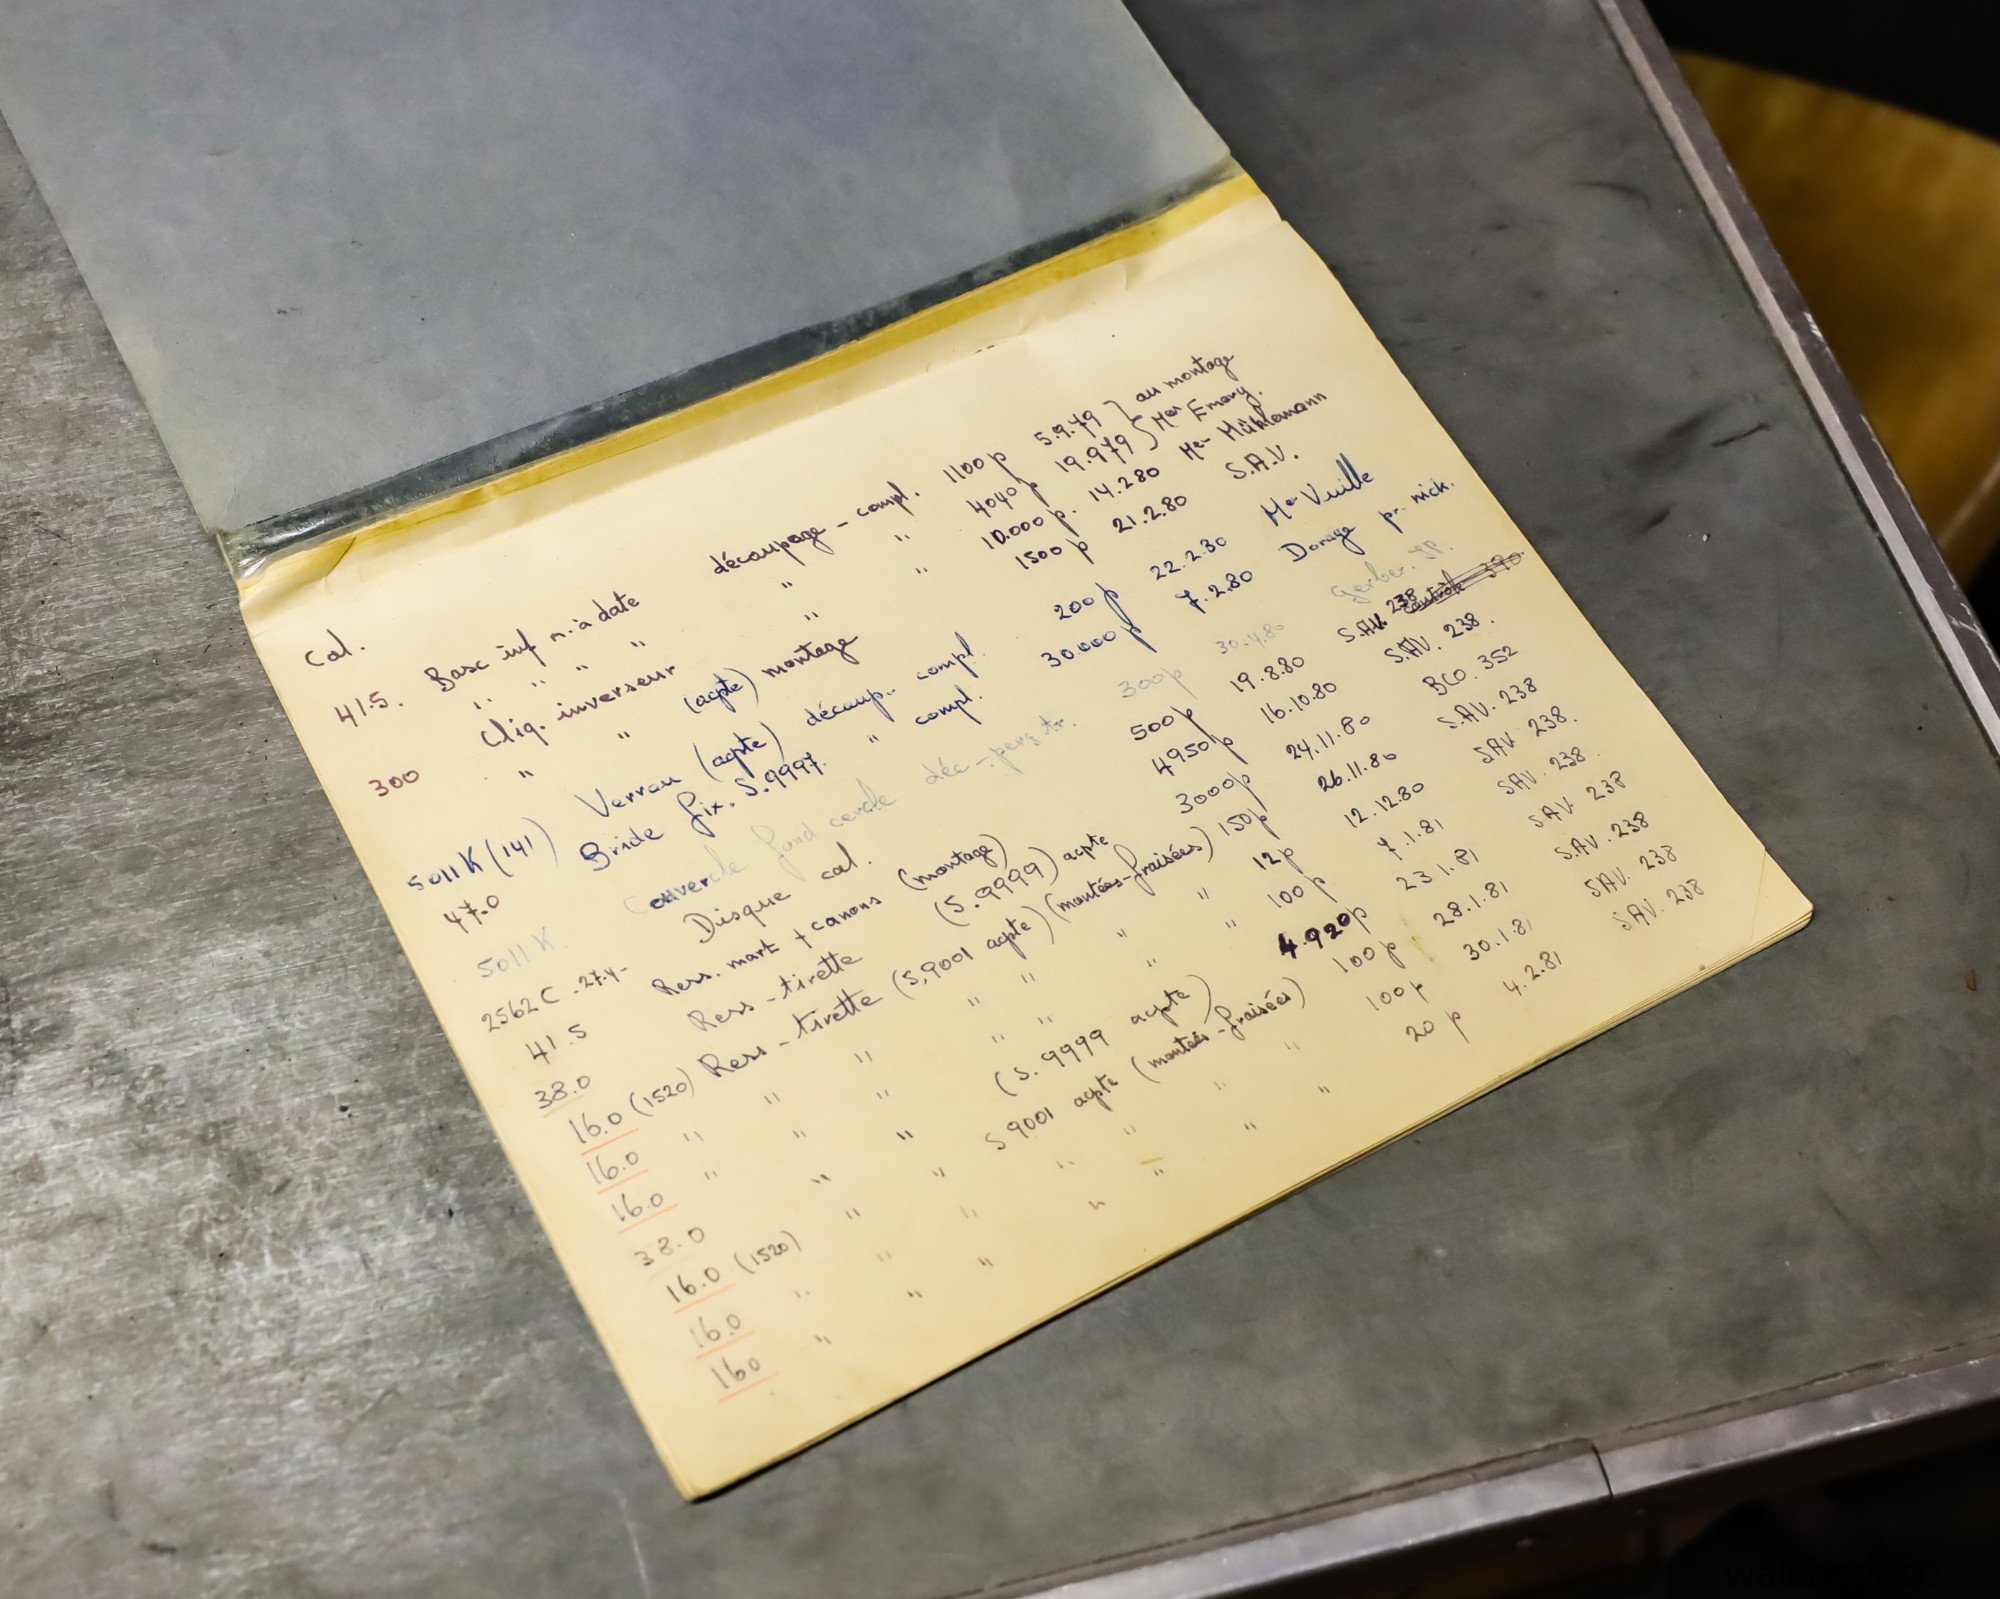 Cal.
41.5. Base inf m. à date découpage - compl. 1100 p 5.9.79 } au montage
" " " " " 4040 p 19.9.79 } Mer Emery.
300 Cliq. inverseur " " 10.000 p. 14.2.80 Me- Mühlemann
" " (acpte) montage 1500 p 21.2.80 S.A.V.
5011 K (141) Verrou (acpte) découp.- compl. 200 p 22.2.80 Me Vuille
47.0 Bride fix. S.9997. " compl. 30.000 p 7.2.80 Dorage pr. nick.
5011 K. Couvercle fond cercle 300 p 30.4.80 Gerber. JP.
2562 C -27.4- Disque cal. 500 p 19.8.80 S.AV. 238 Contrôle 390
41.5 Ress. mart + canons (montage) 4950 p 16.10.80 S.AV. 238.
38.0 Ress - tirette (S.9999) acpte 3000 p 24.11.80 BCO. 352
16.0 (1520) Ress - tirette (S.9001 acpte) (montées-fraisées) 150 p 26.11.80 S.AV. 238
16.0 " " " " " 12 p 12.12.80 SAV 238.
16.0 " " " " " 100 p 7.1.81 SAV. 238
38.0 " " (S.9999 acpte) 4.920 p 23 1.81 SAV. 238
16.0 (1520) " " S 9001 acpte (montées-fraisées) 100 p 28.1.81 S.AV. 238
16.0 " " " " " " 100 p 30.1.81 SAV. 238
160 " " " " " " 20 p 4.2.81 SAV. 238
watchadvice